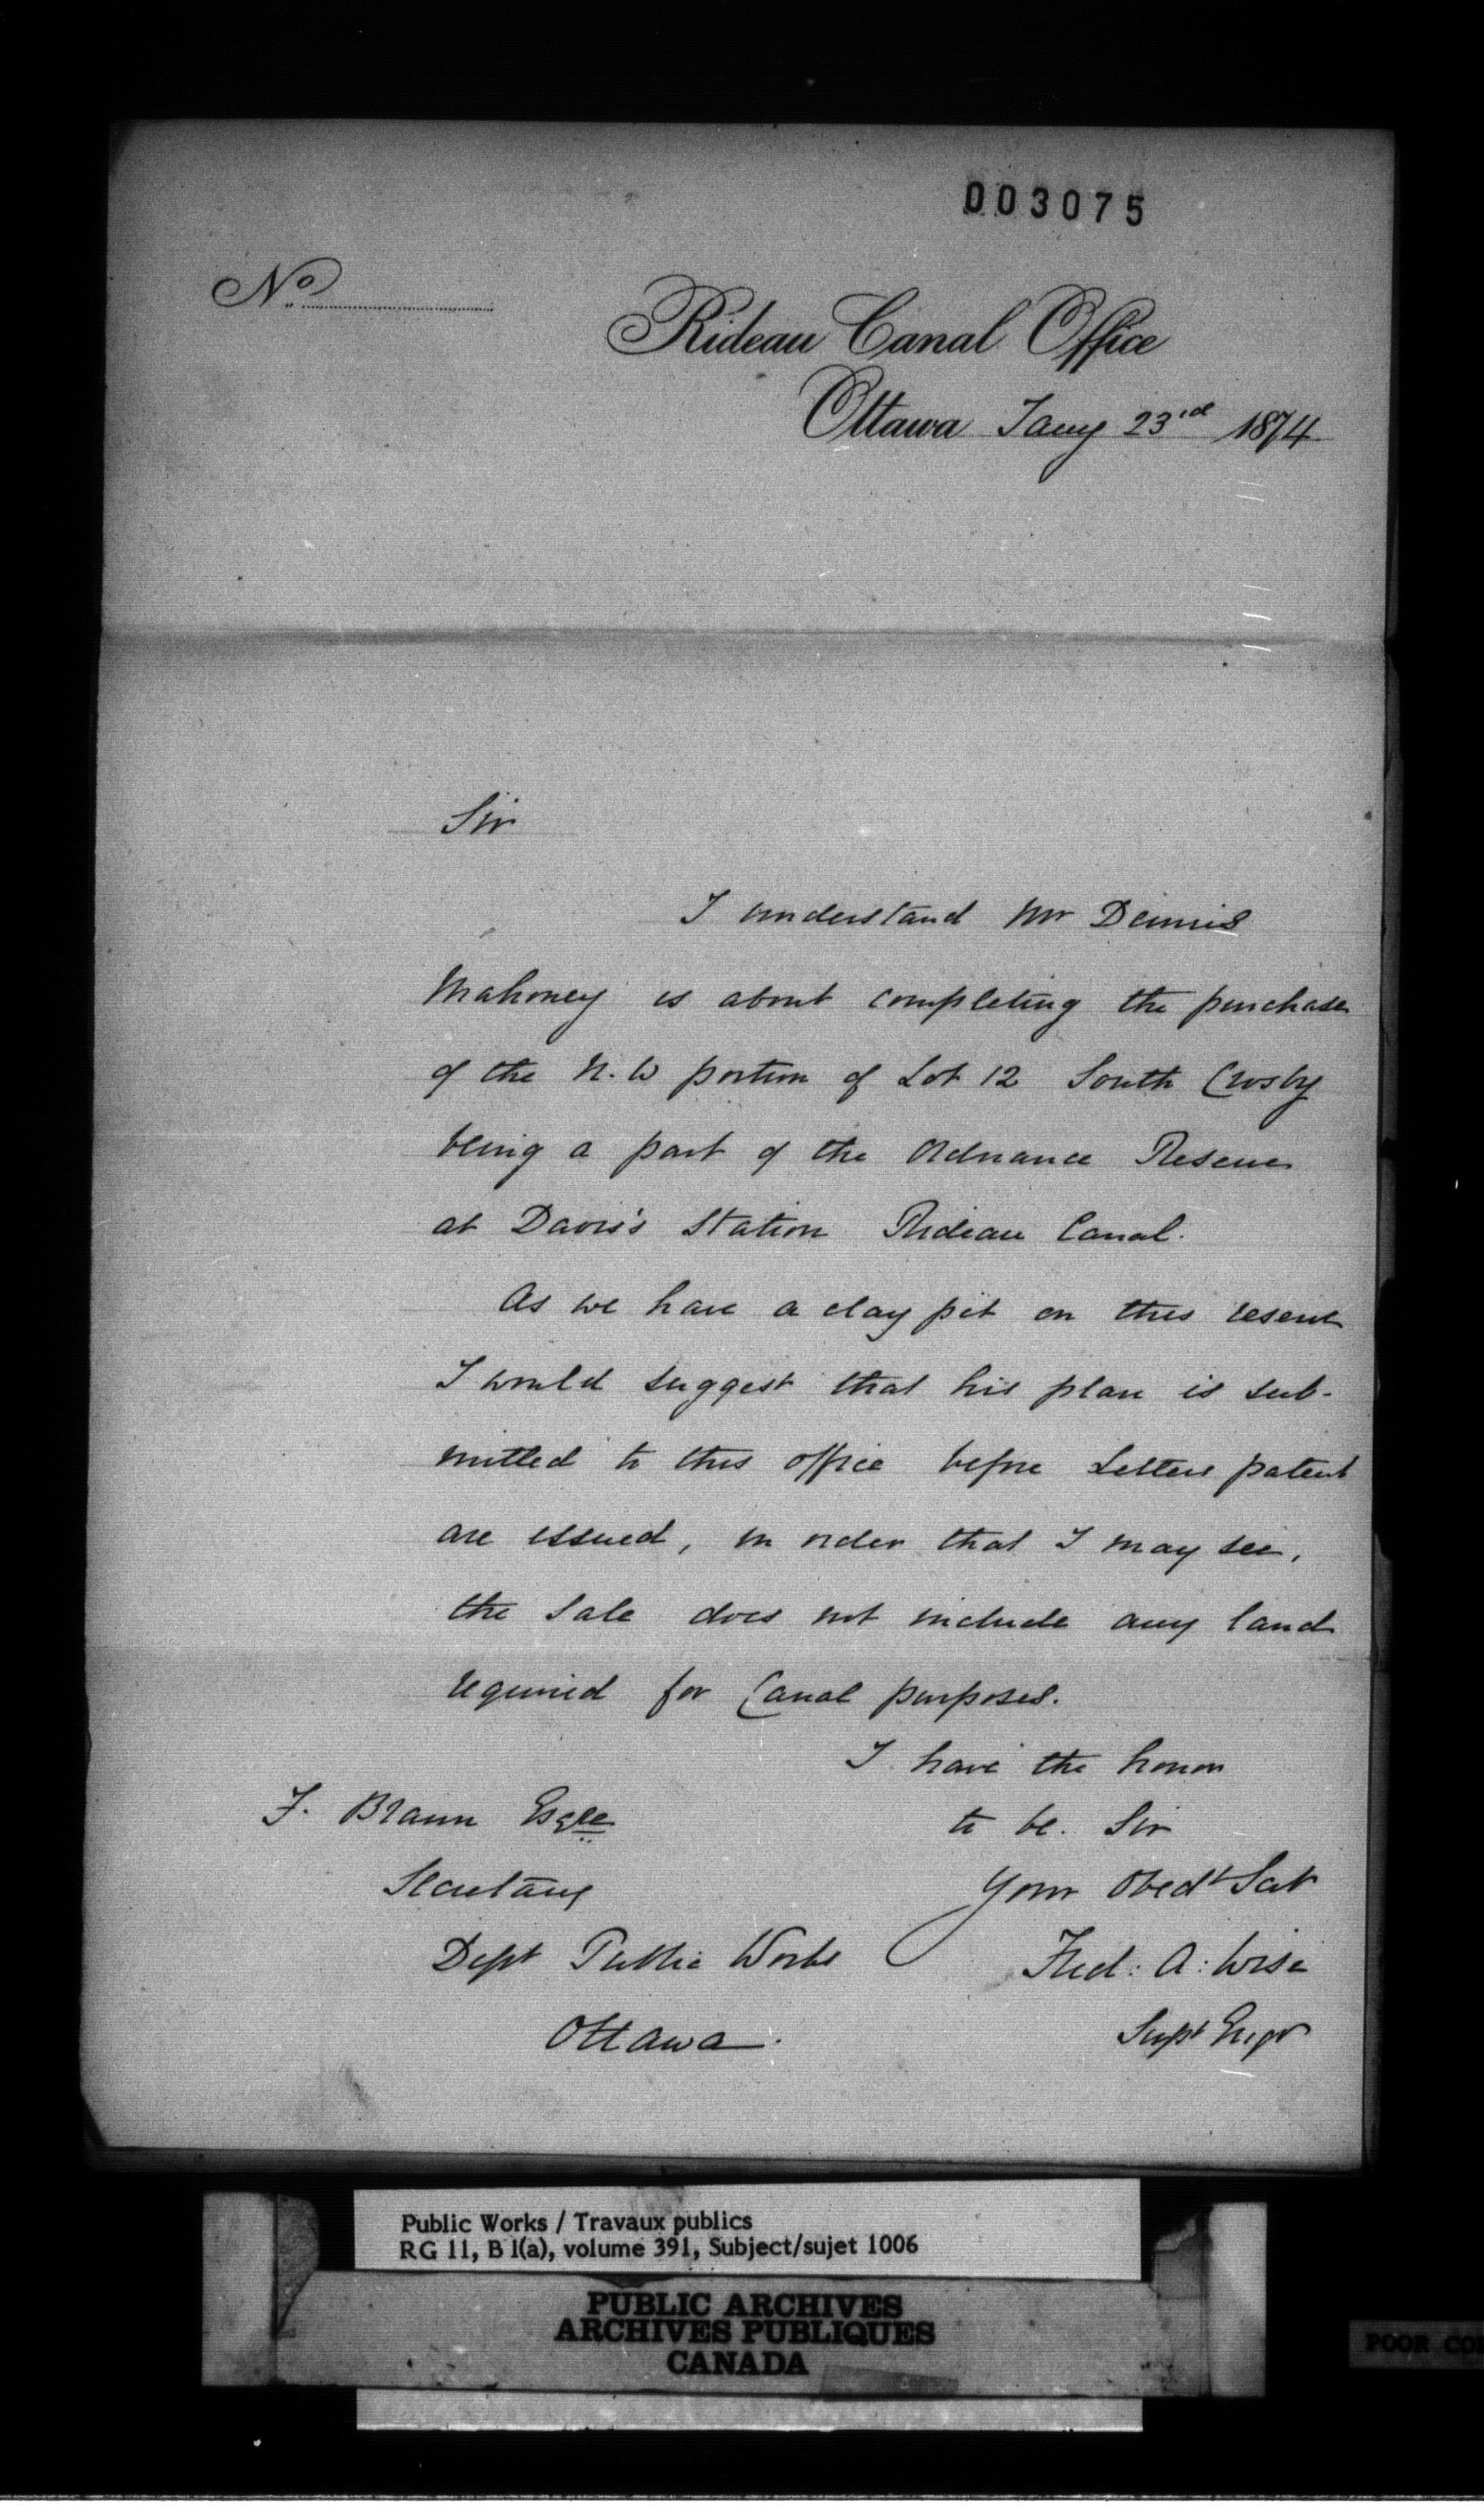 003075
No
Rideau Canal Office
Ottawa Jany 23rd 1874
Sir
I understand Mr Dennis
Mahoney is about completing the purchase
of the N.W portion of Lot 12 South Crosby
being a part of the Ordnance Reserve
at Davis's Station Rideau Canal.
As we have a clay pit on this reserve
I would suggest that his plan is sub-
mitted to this office before Letters patent
are issued, in order that I may see,
the sale does not include any land
required for Canal purposes.
I have the honor
to be. Sir
Your Obedt Sevt
Fred: A: Wise
Supt Engr
F. Braun Esqre
Secretary
Dept Public Works
Ottawa.
Public Works / Travaux publics
RG 11, B 1(a), volume 391, Subject/sujet 1006
PUBLIC ARCHIVES
ARCHIVES PUBLIQUES
CANADA
POOR CO